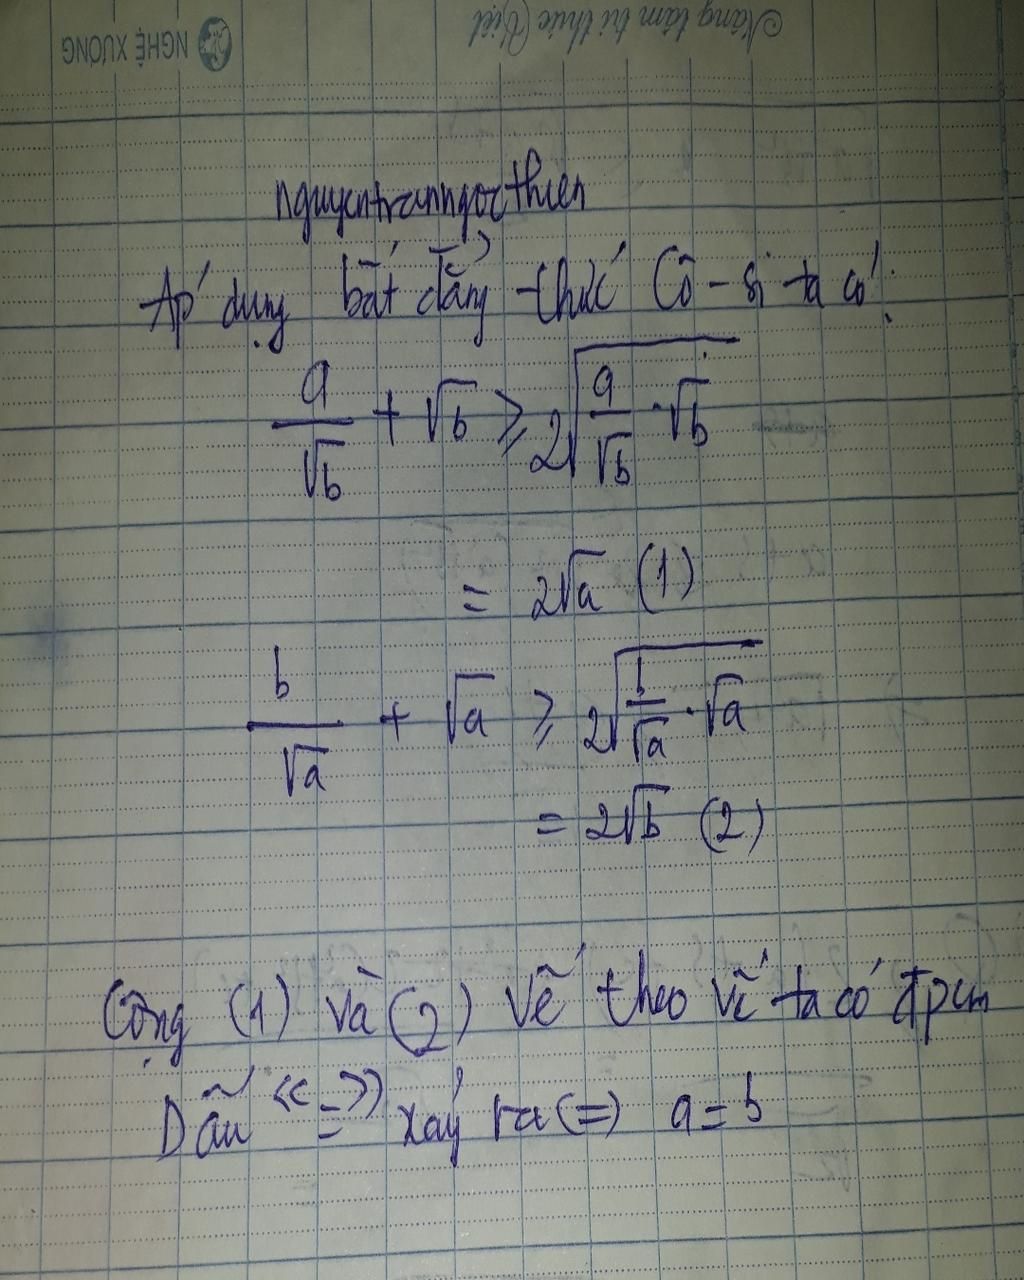 Nâng tầm tri thức Việt
NGHỆ XƯƠNG
nguyentranngocthien
Áp dụng bất đẳng thức Cô-si ta có:
a/√b + √b ⩾ 2√(a/√b · √b)
= 2√a (1)
b/√a + √a ⩾ 2√(b/√a · √a)
= 2√b (2)
Cộng (1) và (2) vế theo vế ta có đpcm
Dấu "=" xảy ra (=) a = b